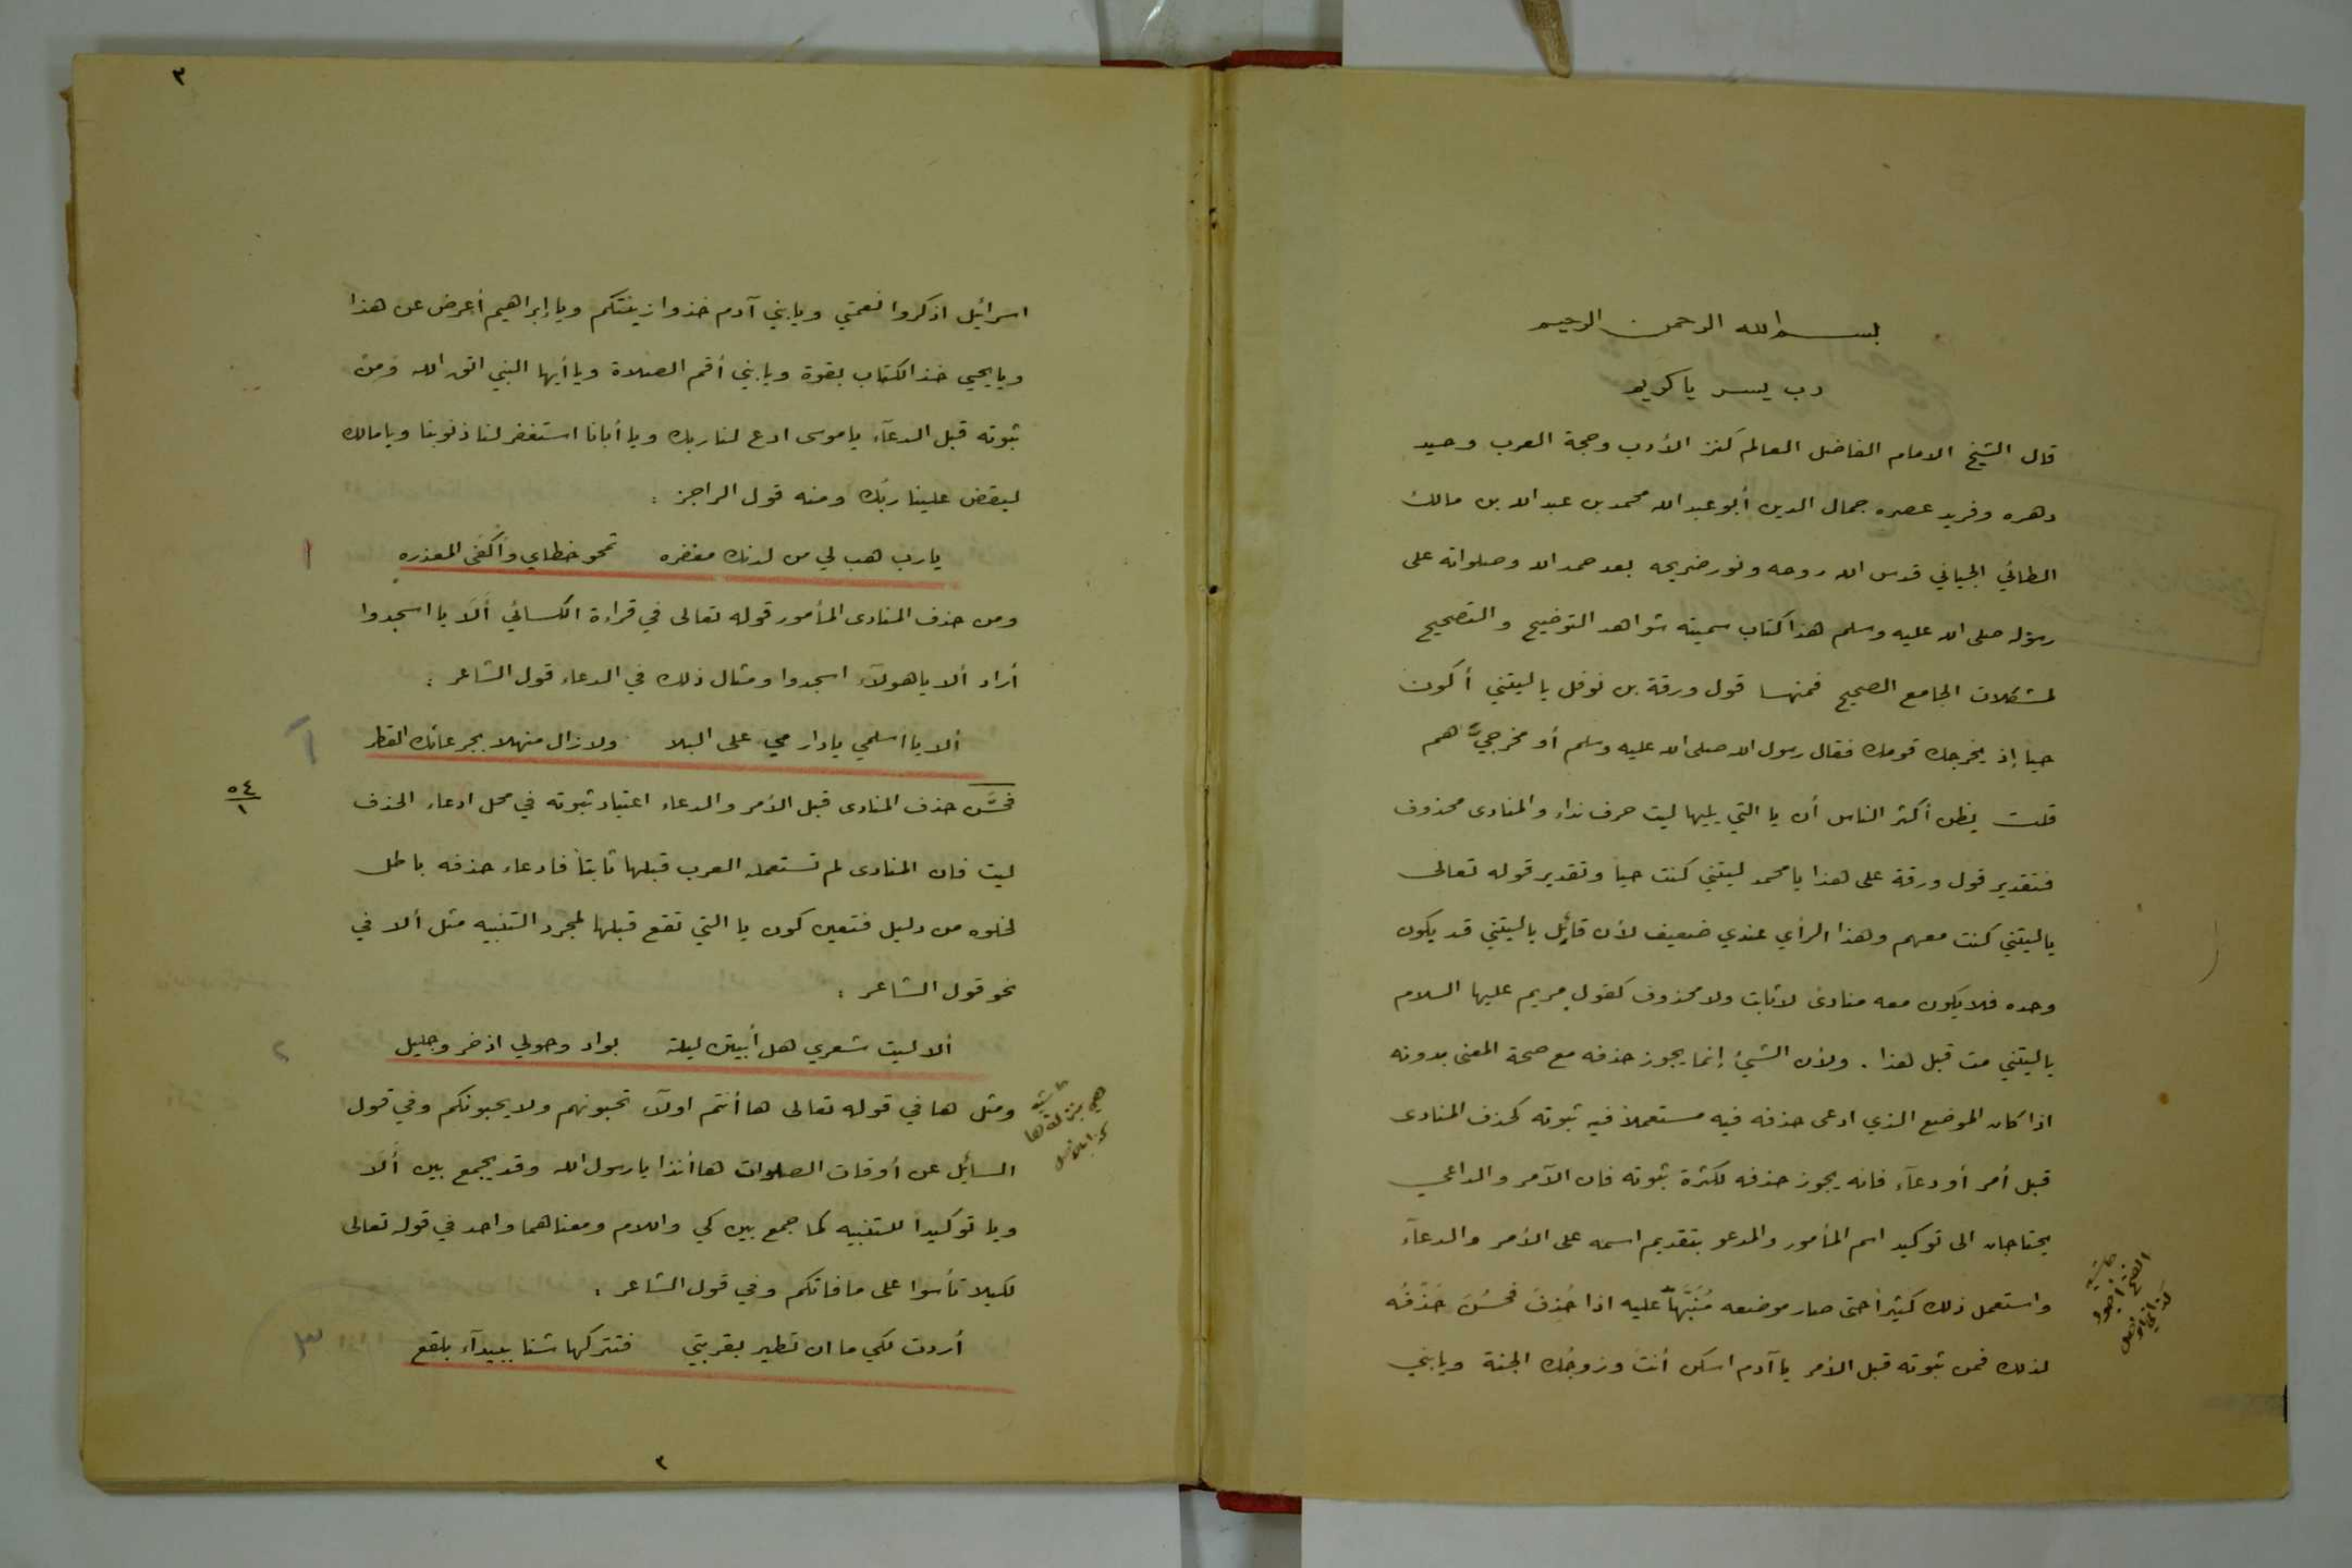 بسم الله الرحمن الرحيم
رب يسر يا كريم
قال الشيخ الامام الفاضل العالم كنز الأدب وحجة العرب وحيد
دهره وفريد عصره جمال الدين أبو عبد الله محمد بن عبد الله بن مالك
الطائي الجياني قدس الله روحه ونور ضريحه بعد حمد الله وصلواته على
رسوله صلى الله عليه وسلم هذا كتاب سميته شواهد التوضيح والتصحيح
لمشكلات الجامع الصحيح فمنها قول ورقة بن نوفل يا ليتني أكون
حيا إذ يخرجك قومك فقال رسول الله صلى الله عليه وسلم أو مخرجيَّ هم
قلت يظن أكثر الناس أن يا التي يليها ليت حرف نداء والمنادى محذوف
فتقدير قول ورقة على هذا يا محمد ليتني كنت حيا وتقدير قوله تعالى
يا ليتني كنت معهم وهذا الرأي عندي ضعيف لأن قائل يا ليتني قد يكون
وحده فلا يكون معه منادى لا ثابت ولا محذوف كقول مريم عليها السلام
يا ليتني مت قبل هذا . ولأن الشيئ إنما يجوز حذفه مع صحة المعنى بدونه
اذا كان الموضع الذي ادعى حذفه فيه مستعملاً فيه ثبوته كحذف المنادى
قبل أمر أو دعآء فانه يجوز حذفه لكثرة ثبوته فان الآمر والداعي
يحتاجان الى توكيد اسم المأمور والمدعو بتقديم اسمه على الأمر والدعآء
واستعمل ذلك كثيراً حتى صار موضعه مُنَبِّهاً عليه اذا حُذِفَ فحَسُنَ حَذْفُه
لذلك فمن ثبوته قبل الأمر يا آدم اسكن أنت وزوجُك الجنة ويا بني
حاشية
٣
اسرائيل اذكروا نعمتي ويا بني آدم خذوا زينتكم ويا إبراهيم أعرض عن هذا
ويا يحيي خذ الكتاب بقوة ويا بني أقم الصلاة ويا أيها النبي اتق الله ومن
ثبوته قبل الدعآء يا موسى ادع لنا ربك ويا أبانا استغفر لنا ذنوبنا ويا مالك
ليقض علينا ربُك ومنه قول الراجز :
يا رب هب لي من لدنك مغفره تمحو خطاي وأُكفى المعذره
١
ومن حذف المنادى المأمور قوله تعالى في قراءة الكسائي أَلَا يا اسجدوا
أراد ألا يا هولآء اسجدوا ومثال ذلك في الدعاء قول الشاعر :
ألا يا اسلمي يا دار مي على البلا ولا زال منهلا بجرعائك القطر
فحسَّن حذف المنادى قبل الأمر والدعاء اعتياد ثبوته في محل ادعاء الحذف
٥٤
١
ليت فان المنادى لم تستعمله العرب قبلها ثابتاً فادعاء حذفه باطل
لخلوه من دليل فتعين كون يا التي تقع قبلها لمجرد التنبيه مثل ألا في
نحو قول الشاعر :
ألا ليت شعري هل أبيتن ليلة بواد وحولي اذخر وجليل
٢
ومثل ها في قوله تعالى ها أنتم اولآء تحبونهم ولا يحبونكم وفي قول
حاشية
السائل عن أوقات الصلوات ها أنذا يا رسول الله وقد يجمع بين أَلَا
ويا توكيدا للتنبيه كما جمع بين كي واللام ومعناهما واحد في قوله تعالى
لكيلا تأسوا على ما فاتكم وفي قول الشاعر :
أردت لكي ما ان تطير بقربتي فتتركها شنا ببيدآء بلقع
٣
٣